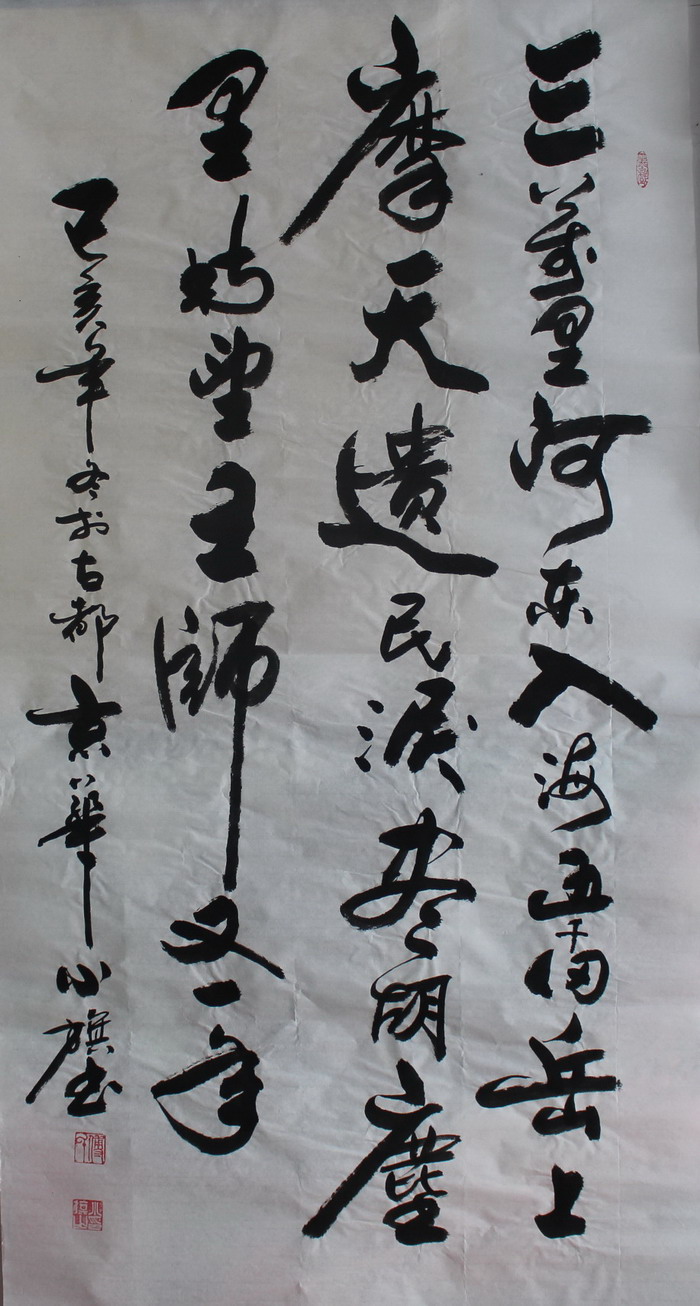 三萬里河东入海五千仞岳上
摩天遺民淚尽胡塵
里南望王師又一年
己亥年冬於古都京華小旗书